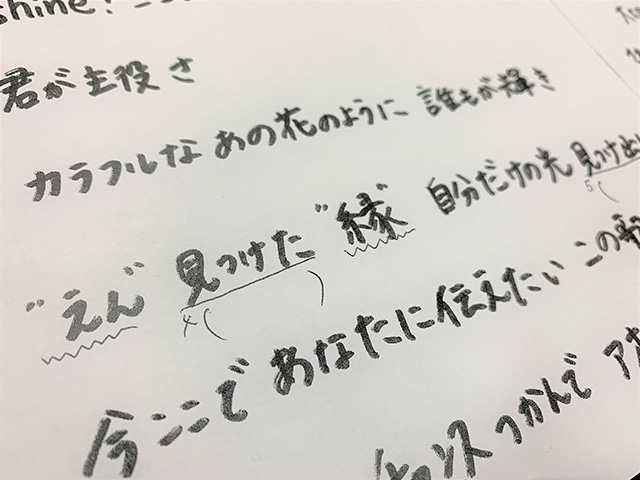 shine!
君が主役さ
カラフルな あの花のように 誰もが輝き
"えん" 見つけた "縁" 自分だけの光 見つけ出
今ここで あなたに伝えたい この歌
チャンス つかんで